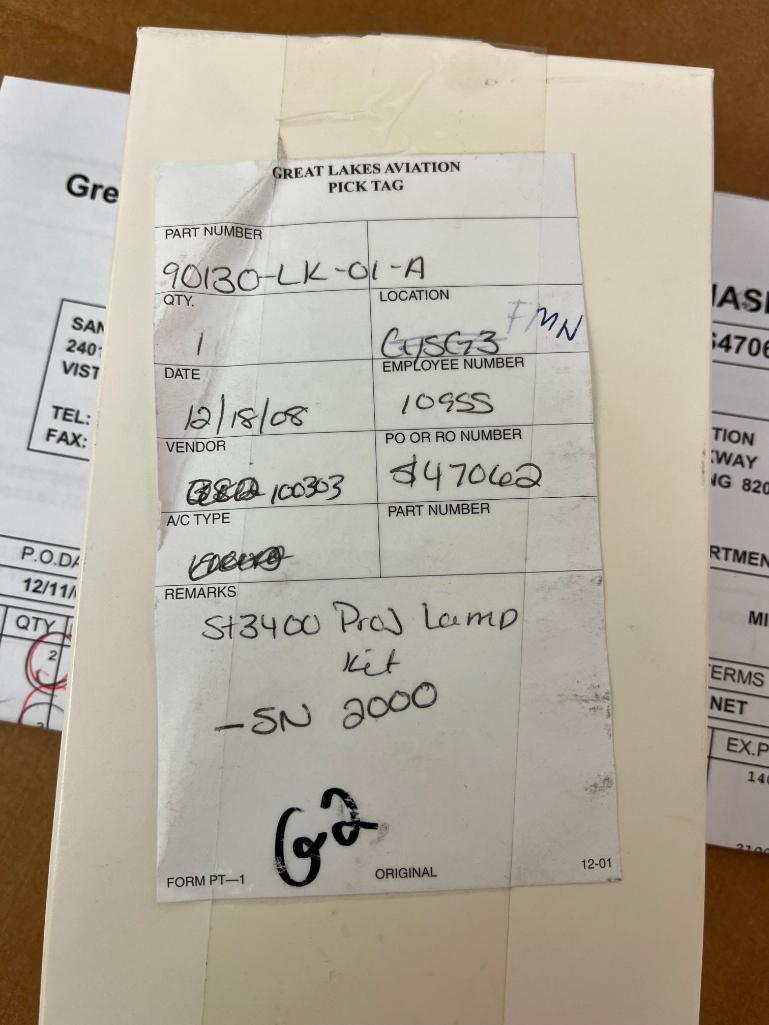 GREAT LAKES AVIATION
PICK TAG
PART NUMBER
90130-LK-01-A
QTY.
1
LOCATION
FMN
DATE
12/18/08
EMPLOYEE NUMBER
10955
VENDOR
100303
PO OR RO NUMBER
S47062
A/C TYPE
PART NUMBER
REMARKS
St3400 Prod Lamp
Kit
-SN 2000
G2
FORM PT—1
ORIGINAL
12-01
Gre
SAN
240
VIST
TEL:
FAX:
P.O.DA
12/11/
QTY
2
4706
TION
WAY
NG 820
RTMEN
MI
ERMS
NET
EX.P